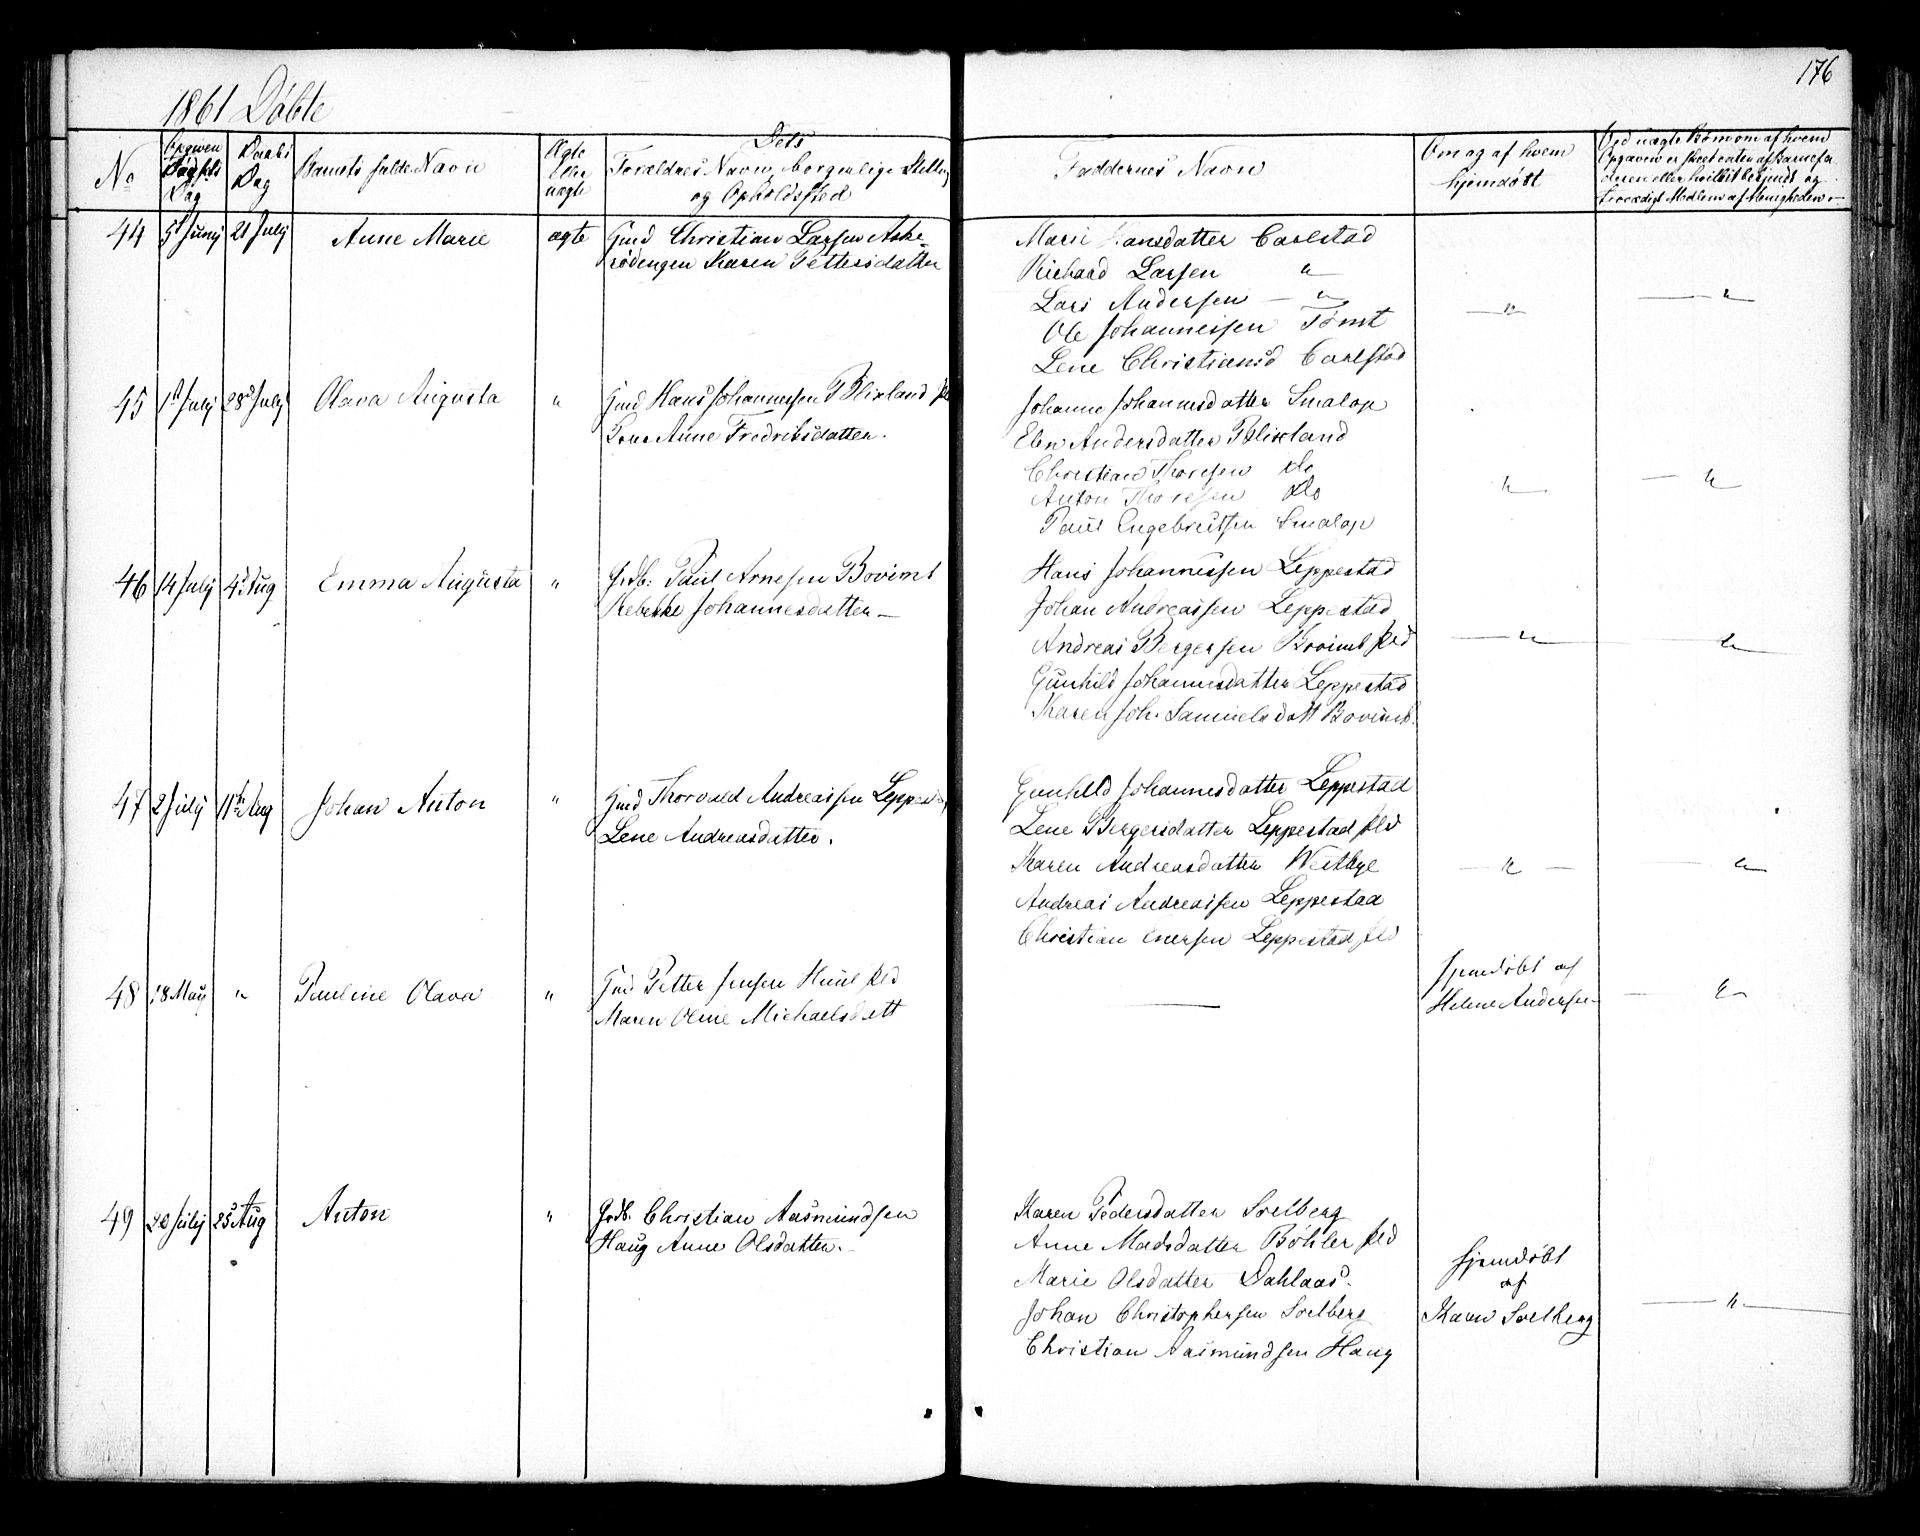 176
1861 Döbte
No
Opgiven
Födsels
Dag
Daabs
Dag
Barnets fulde Navn
Ægte
eller
uægte
Dets
Foraldres Navn, borgerlige Stilling
og Opholdssted
Faddernes Navn
Om og af hvem
hjemdøbt
Ved uægte Børn om af hvem
Opgaven er skeet enten af Barnefa
deren eller hvilket bekjendt og
troværdigt Medlem af Menigheden.
44 5t Juny 21 July Anne Marie ægte Gmd Christian Larsen Aske-
rödengen Karen Pettersdatter
Marie Hansdatter Carlstad
Richard Larsen "
Lars Andersen — "
Ole Johannessen Tömt
Lene Christiansd Carlstad
— " —
— " —
45 1st July 28d July Olava Augusta " Gmd Hans Johannesen Blixland
Anne Fredriksdatter.
Johanne Johannesdatter Smalop
Elen Andersdatter Blixland
Christian Thoresen do
Anton Thoresen do
Paul Engebretsen Smalop
" —
— " —
46 14 July 4d Aug Emma Augusta " Grdb: Paul Arnesen Bovimt
Rebekke Johannesdatter —
Hans Johannessen Leppestad
Johan Andreassen Leppestad
Andreas Bergersen Bovimt pld
Gunhild Johannesdatter Leppestad
Karen Joh. Samuelsdatt Bovimt.
— " —
— " —
47 2 July 11te Aug Johan Anton " Gmd Thorvald Andreassen Leppestad
Lene Andreasdatter.
Gunhild Johannesdatter Leppestad
Lene Bergersdatter Leppestad pld
Karen Andreasdatter Westbye
Andreas Andreassen Leppestad
Christian Enersen Leppestad pld
— " —
— " —
48 18 May " Pauline Olava " Gmd Petter Jensen Huul pld
Maren Oline Michaelsdatt
—
hjemdöbt af
Helene Andersen
— " —
49 20 July 25 Aug Anton " Grdb. Christian Aasmundsen
Haug Anne Olsdatter.
Karen Pedersdatter Solberg
Anne Madsdatter Böhler pld
Marie Olsdatter Dahlaas.
Johan Christophersen Solberg
Christian Aasmundsen Haug
hjemdöbt
af
Karen Solberg
— " —